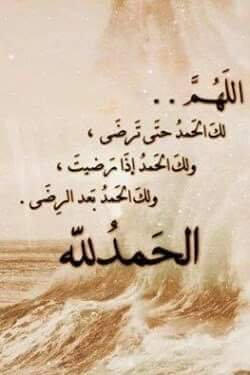 اللَّهُمَّ . .
لكَ الحَمدُ حتَّى تَرضَى ،
ولكَ الحَمدُ إذَا رَضيتَ ،
ولكَ الحَمدُ بَعد الرِضَى .
الحَمدُللّه